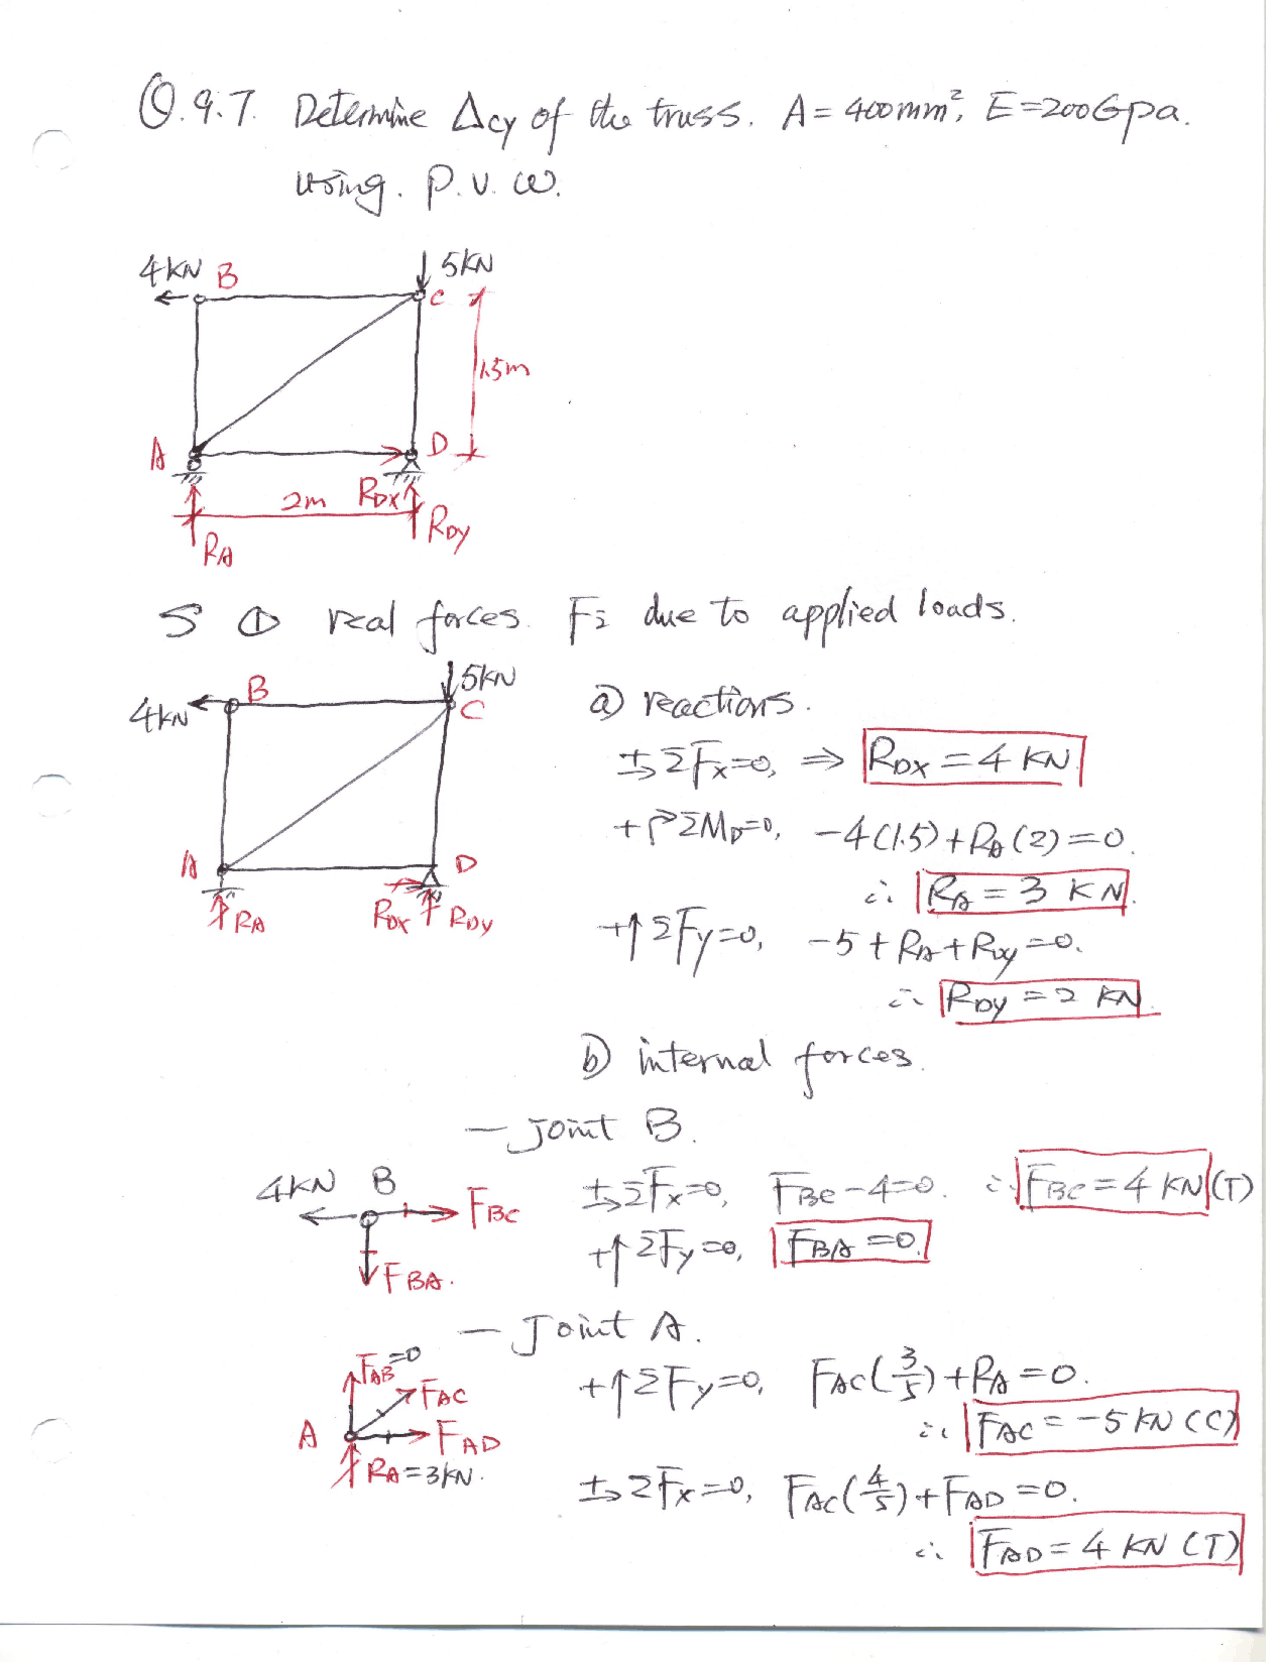 Q.9.7. Determine Δcy of the truss. A = 400mm², E=200Gpa.
using. P.V.W.
4KN B 5KN
C
1.5m
A D
2m RDX
RA RDY
S ① real forces. Fi due to applied loads.
4KN B 5KN
C
a) reactions.
+→ ΣFx=0, ⇒ RDX = 4 KN
+↱ΣMD=0, -4(1.5)+RA(2)=0.
∴ RA = 3 KN.
A D
RA RDX RDY
+↑ΣFy=0, -5+RA+RDy=0.
∴ RDY = 2 KN.
b) internal forces.
— Joint B.
4KN B FBC
FBA.
+→ ΣFx=0, FBC-4=0. ∴ FBC = 4 KN (T)
+↑ΣFy=0, FBA=0.
— Joint A.
FAB=0
FAC
A FAD
RA=3KN.
+↑ΣFy=0, FAC(3/5)+RA=0.
∴ FAC = -5 KN (C)
+→ ΣFx=0, FAC(4/5)+FAD=0.
∴ FAD = 4 KN (T)